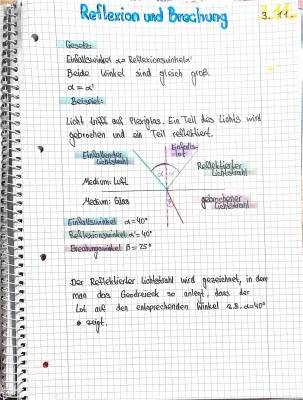 Reflexion und Brechung
3.11.
Gesetz:
Einfallswinkel α = Reflexionswinkel α'
Beide Winkel sind gleich groß.
α = α'
Beispiel:
Licht trifft auf Plexiglas. Ein Teil des Lichts wird
gebrochen und ein Teil reflektiert.
Einfallender
Lichtstrahl
Einfalls-
lot
α α'
Reflektierter
Lichtstrahl
Medium: Luft
Medium: Glas
gebrochener
Lichtstrahl
β
Einfallswinkel α=40°
Reflexionswinkel α'=40°
Brechungswinkel β=25°
Der Reflektierter Lichtstrahl wird gezeichnet, in dem
man das Geodreieck so anlegt, dass der
Lot auf den entsprechenden Winkel z.B. α=40°
zeigt.